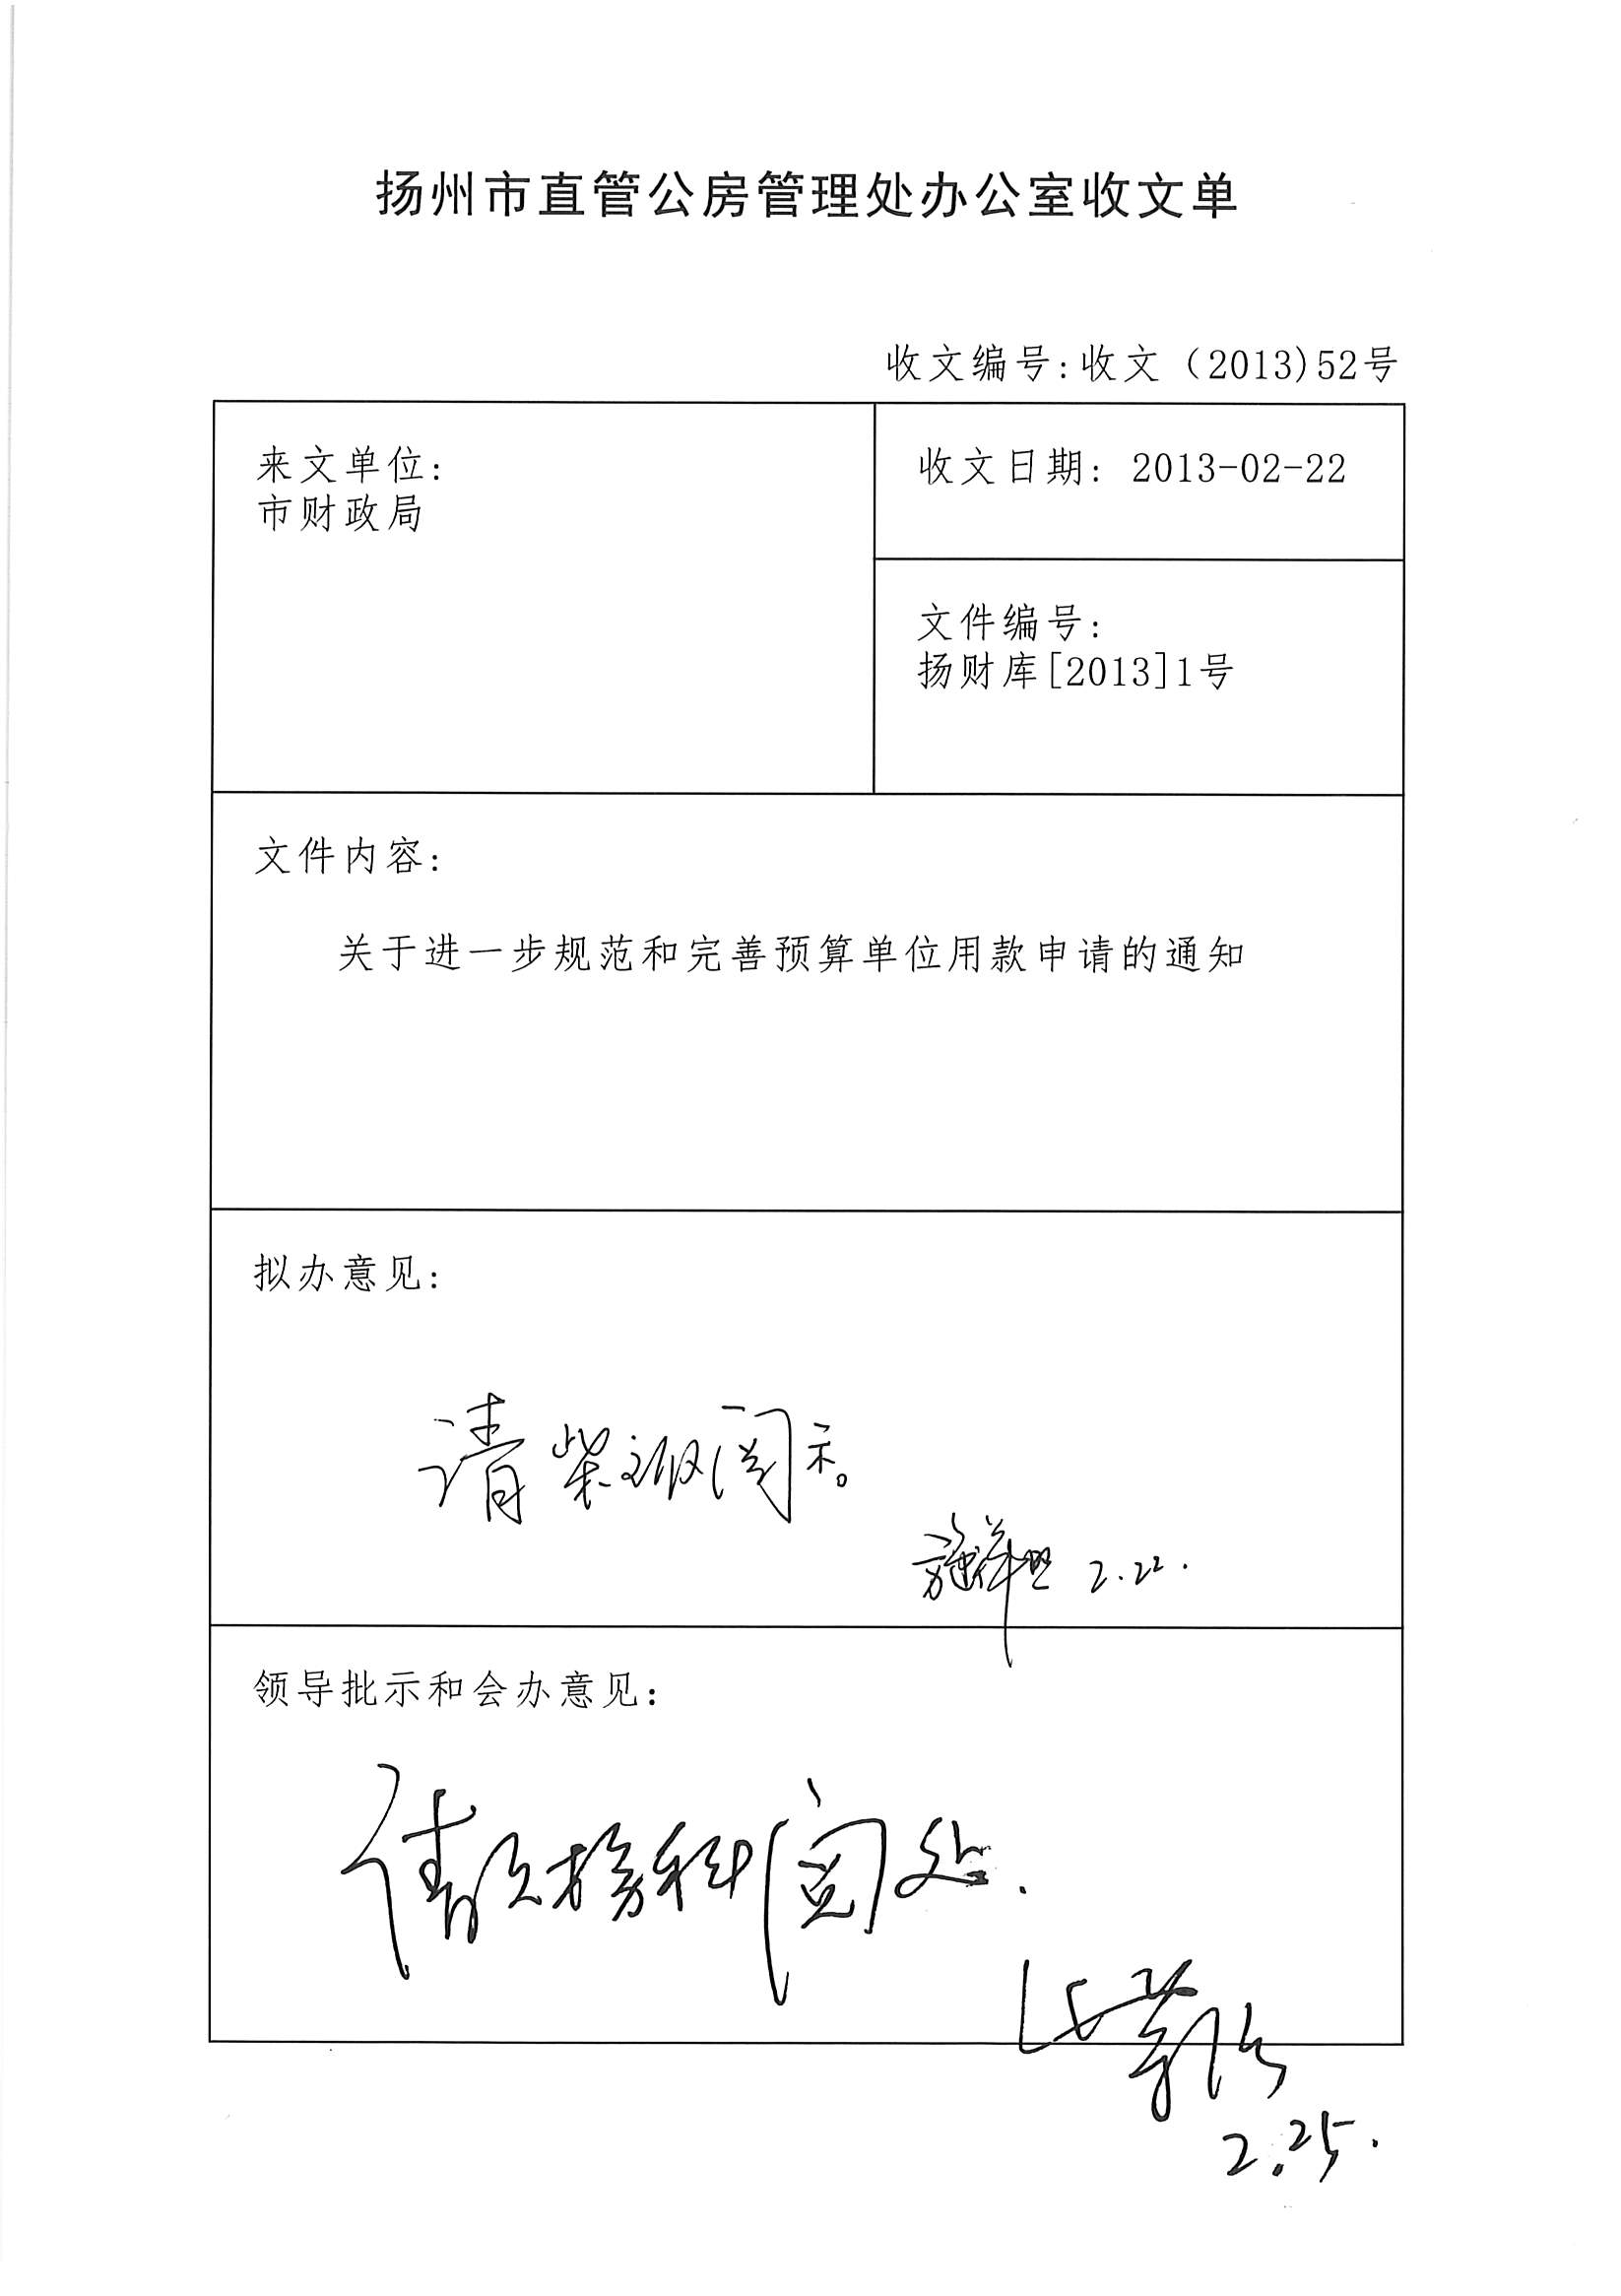 扬州市直管公房管理处办公室收文单
收文编号:收文（2013)52号
来文单位:
市财政局
收文日期: 2013-02-22
文件编号:
扬财库[2013]1号
文件内容:
关于进一步规范和完善预算单位用款申请的通知
拟办意见:
请柴阅示。
2.22.
领导批示和会办意见:
请科阅处.
2.25.